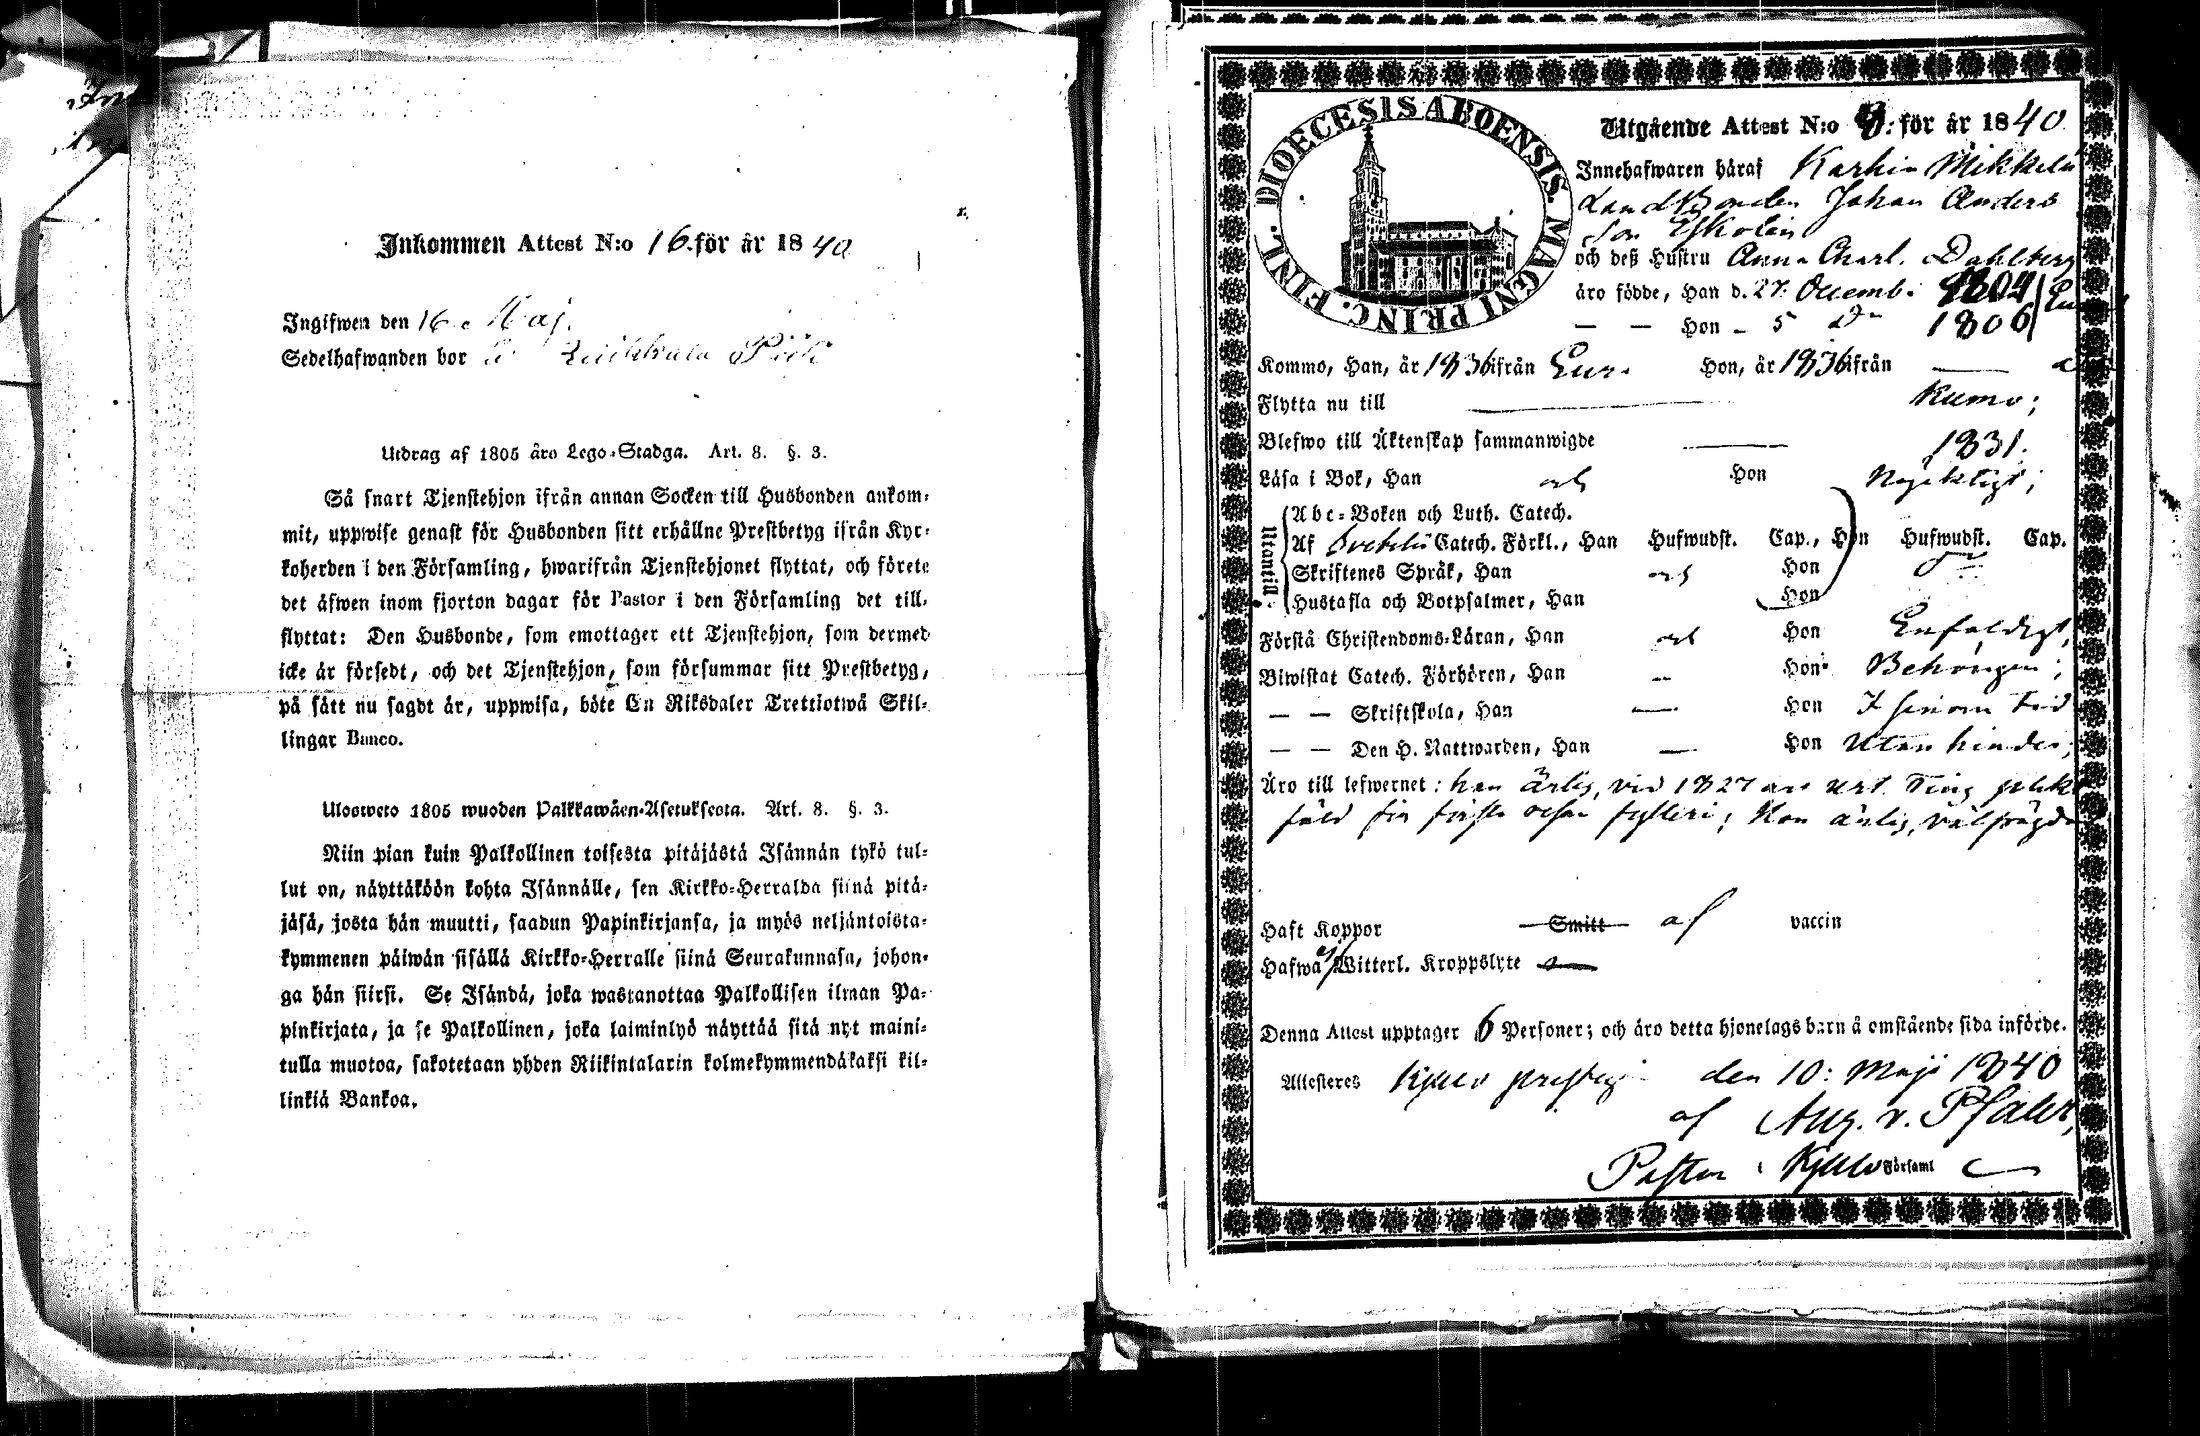 Inkommen Attest N:o 16. för år 1840
Ingifwen den 16. Maj.
Sedelhafwanden bor
Utdrag af 1805 års Lego-Stadga. Art. 8. §. 3.
Så snart Tjenstehjon ifrån annan Socken till Husbonden ankom-
mit, uppwise genast för Husbonden sitt erhållne Prestbetyg ifrån Kyr-
koherden i den Församling, hwarifrån Tjenstehjonet flyttat, och förete
det äfwen inom fjorton dagar för Pastor i den Församling det till-
flyttat: Den Husbonde, som emottager ett Tjenstehjon, som dermed
icke är försedt, och det Tjenstehjon, som försummar sitt Prestbetyg,
på sätt nu sagdt är, uppwisa, böte En Riksdaler Trettiotwå Skil-
lingar Banco.
Ulosweto 1805 wuoden Palkkawäen-Asetuksesta. Art. 8. §. 3.
Niin pian kuin Palkollinen toisesta pitäjästä Isännän tykö tul-
lut on, näyttäköön kohta Isännälle, sen Kirkko-Herralda siinä pitä-
jäsä, josta hän muutti, saadun Papinkirjansa, ja myös neljäntoista-
kymmenen päiwän sisällä Kirkko-Herralle siinä Seurakunnasa, johon-
ga hän siirsi. Se Isändä, joka wastanottaa Palkollisen ilman Pa-
pinkirjata, ja se Palkollinen, joka laiminlyö näyttää sitä nyt maini-
tulla muotoa, sakotetaan yhden Riikintalarin kolmekymmendäkaksi kil-
linkiä Bankoa.
DIOECESIS ABOENSIS. MAGNI PRINC. FINL.
Utgående Attest N:o för år 1840
Innehafwaren häraf Karhin Mikkelä
Landtbonden Johan Anders
son Eskolin
och deß Hustru Anna Charl. Dahlberg
äro födde, Han d. 27. Decemb. 1804
— — Hon - 5 do 1806
Kommo, Han, år 1836 ifrån Eura Hon, år 1836 ifrån
Flytta nu till Kumo;
Blefwo till Äktenskap sammanwigde 1831.
Läsa i Bok, Han och Hon Nöjaktigt;
Utantill
Abc-Boken och Luth. Catech.
Af Svebelii Catech. Förkl., Han Hufwudst. Cap., Hon Hufwudst. Cap.
Skriftenes Språk, Han och Hon
Hustafla och Botpsalmer, Han Hon
Förstå Christendoms-Läran, Han och Hon Enfaldigt,
Biwistat Catech. Förhören, Han — Hon Behörigen;
— — Skriftskola, Han — Hon I sinom tid
— — Den H. Nattwarden, Han — Hon Utan hinder;
Äro till lefwernet: han ärlig, vid 1827 års Ting plikt
fäld för första resan fylleri; Hon ärlig, välfrägdad
Haft Koppor Smitt af vaccin
Hafwa Witterl. Kroppslyte
Denna Attest upptager 6 Personer; och äro detta hjonelags barn å omstående sida införde.
Attesteres Kjulo prestg. den 10: Maji 1840
af Aug. v. Pfaler,
Pastor i Kjulo Församl